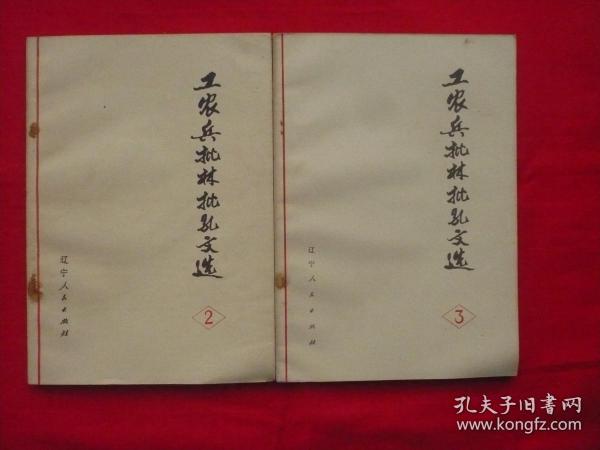 工农兵批林批孔文选
辽宁人民出版社
2
工农兵批林批孔文选
辽宁人民出版社
3
孔夫子旧书网
www.kongfz.com